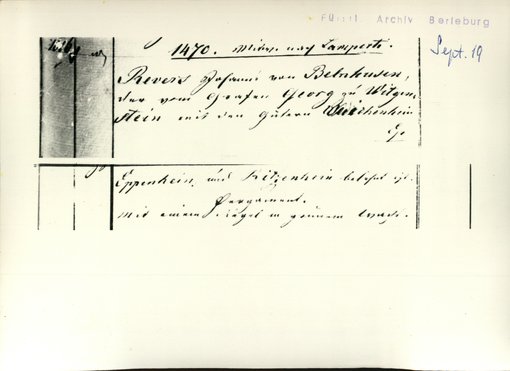 Fürstl. Archiv Berleburg
Sept. 19
1470. Mittw. nach Lamperti.
Revers Johanns von Belnhusen,
der vom Grafen Georg zu Witgen-
stein mit den Gütern
Ep
Eppenhein, und Kitzenhein belehnt ist.
Pergament.
Mit einem Siegel in grünem Wachs.